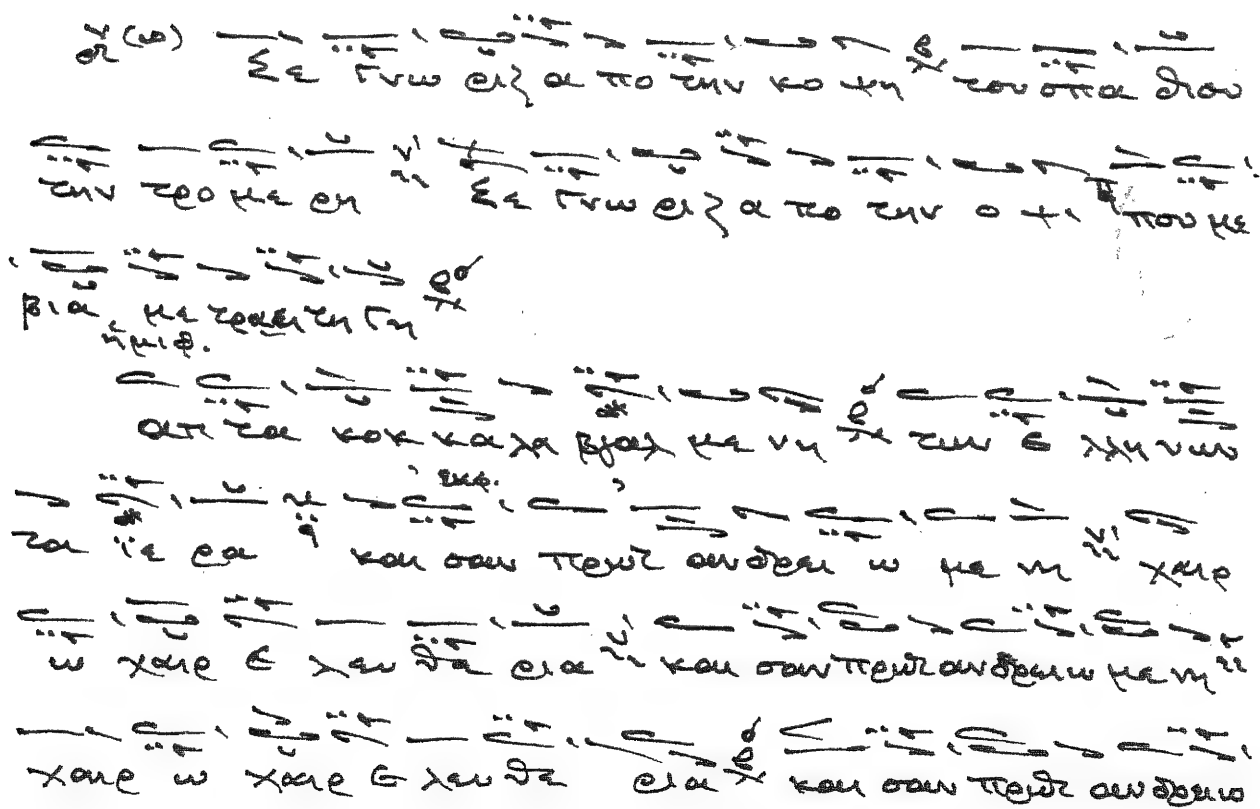 Σε Γνω ριζ α πο την κο ψη του σπα θιου
την τρο με ρη Σε Γνω ριζ α πο την ο ψι που με
βια με τραει τη Γη
ημιφ.
απ τα κοκ κα λα βγαλ με νη των Ε λλη νων
εκφ.
τα ϊε ρα και σαν πρωτ ανδρει ω με νη χαιρ
ω χαιρ Ε λευ θε ρια και σαν πρωτ ανδρειω με νη
χαιρ ω χαιρ Ε λευ θε ρια και σαν πρωτ ανδρειο